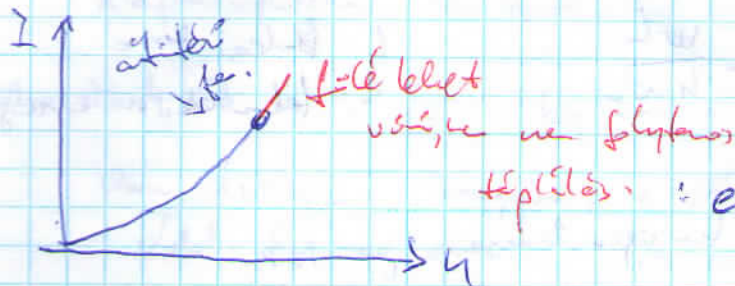 I
átütési
fesz.
fölé lehet
vinni, ha nem folytonos
táplálás. : e
U